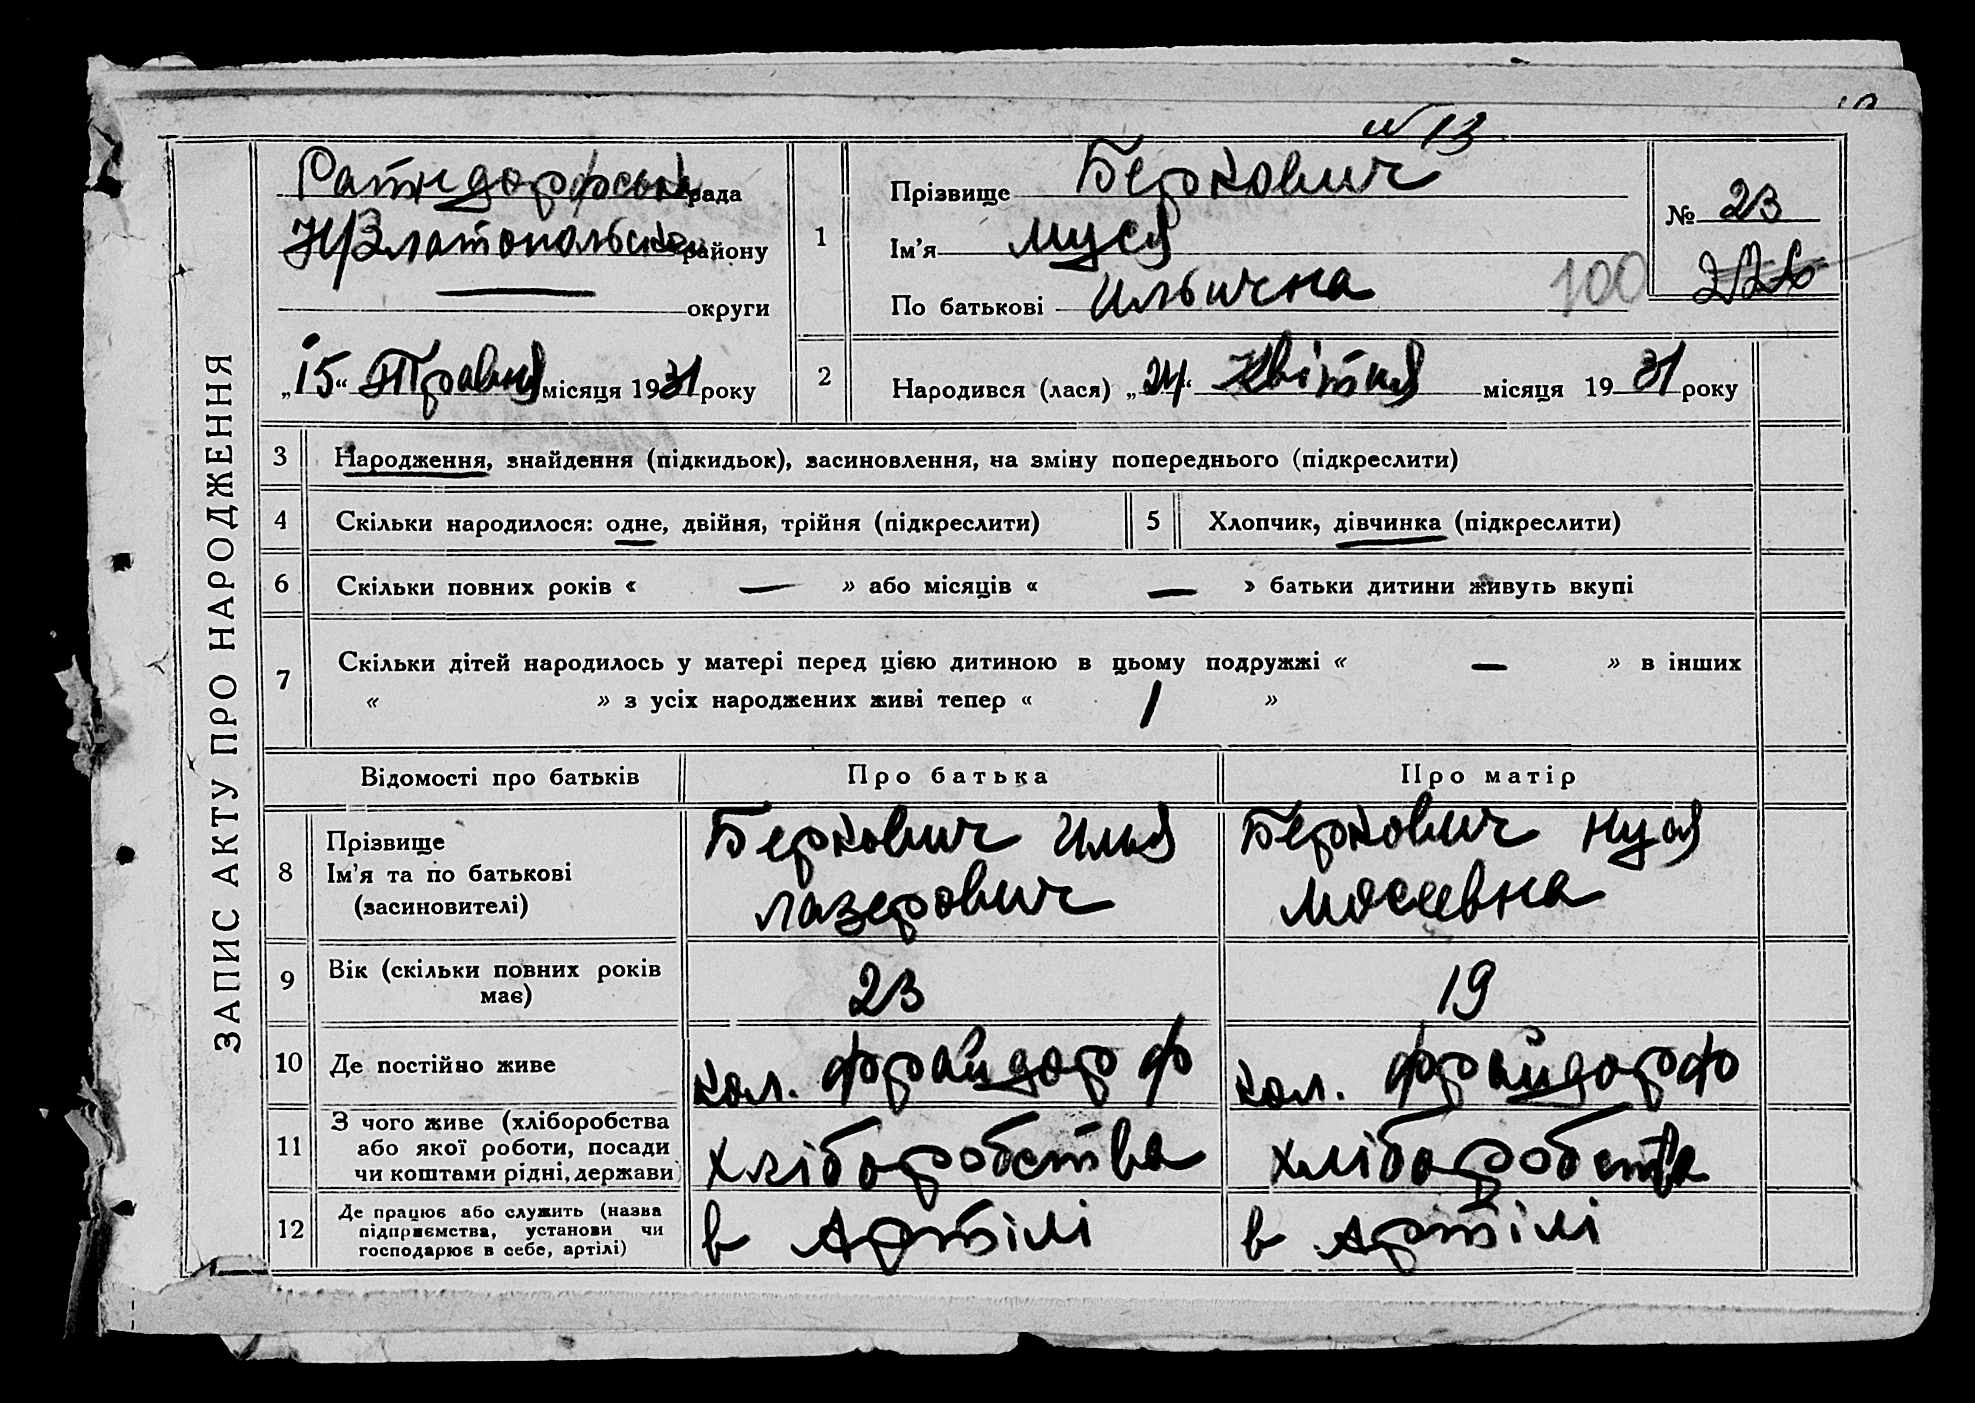 № 13
Ратндорфська рада
Н/Златопольськ району
округи
„15“ Травня місяця 1931 року
ЗАПИС АКТУ ПРО НАРОДЖЕННЯ
1
Прізвище Беркович
Ім’я Муся
По батькові Ильична
100
№ 23
2
Народився (лася) „24“ Квітня місяця 1931 року
3 Народження, знайдення (підкидьок), засиновлення, на зміну попереднього (підкреслити)
4 Скільки народилося: одне, двійня, трійня (підкреслити) 5 Хлопчик, дівчинка (підкреслити)
6 Скільки повних років « — » або місяців « — » батьки дитини живуть вкупі
7 Скільки дітей народилось у матері перед цією дитиною в цьому подружжі « — » в інших
« » з усіх народжених живі тепер « 1 »
Відомості про батьків Про батька Про матір
8 Прізвище
Ім’я та по батькові
(засиновителі)
Беркович Илья
Лазерович
Беркович Нуся
Мосеевна
9 Вік (скільки повних років
має)
23 19
10 Де постійно живе кол. Фрайдорф кол. Фрайдорф
11 З чого живе (хліборобства
або якої роботи, посади
чи коштами рідні, держави)
хліборобства хліборобства
12 Де працює або служить (назва
підприємства, установи чи
господарює в себе, артілі)
в Артілі в Артілі